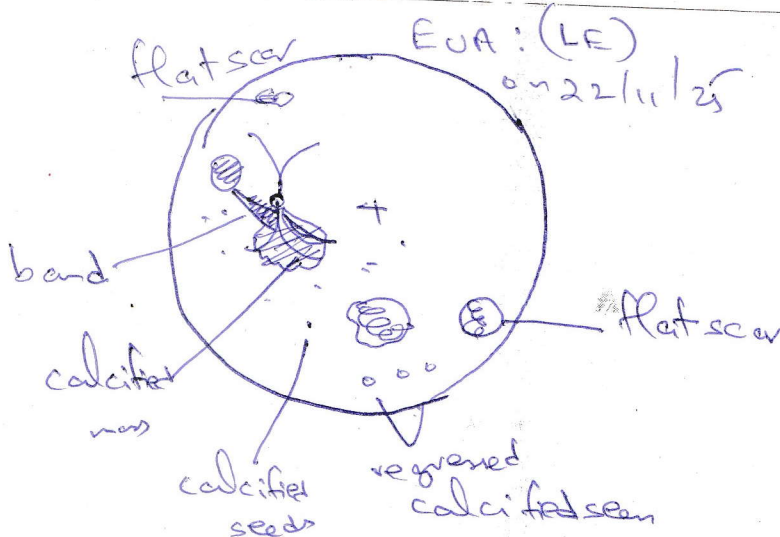 EUA : (LE)
on 22/11/25
flat scar
band
calcified
mass
flat scar
calcified
seeds
regressed
calcified seen